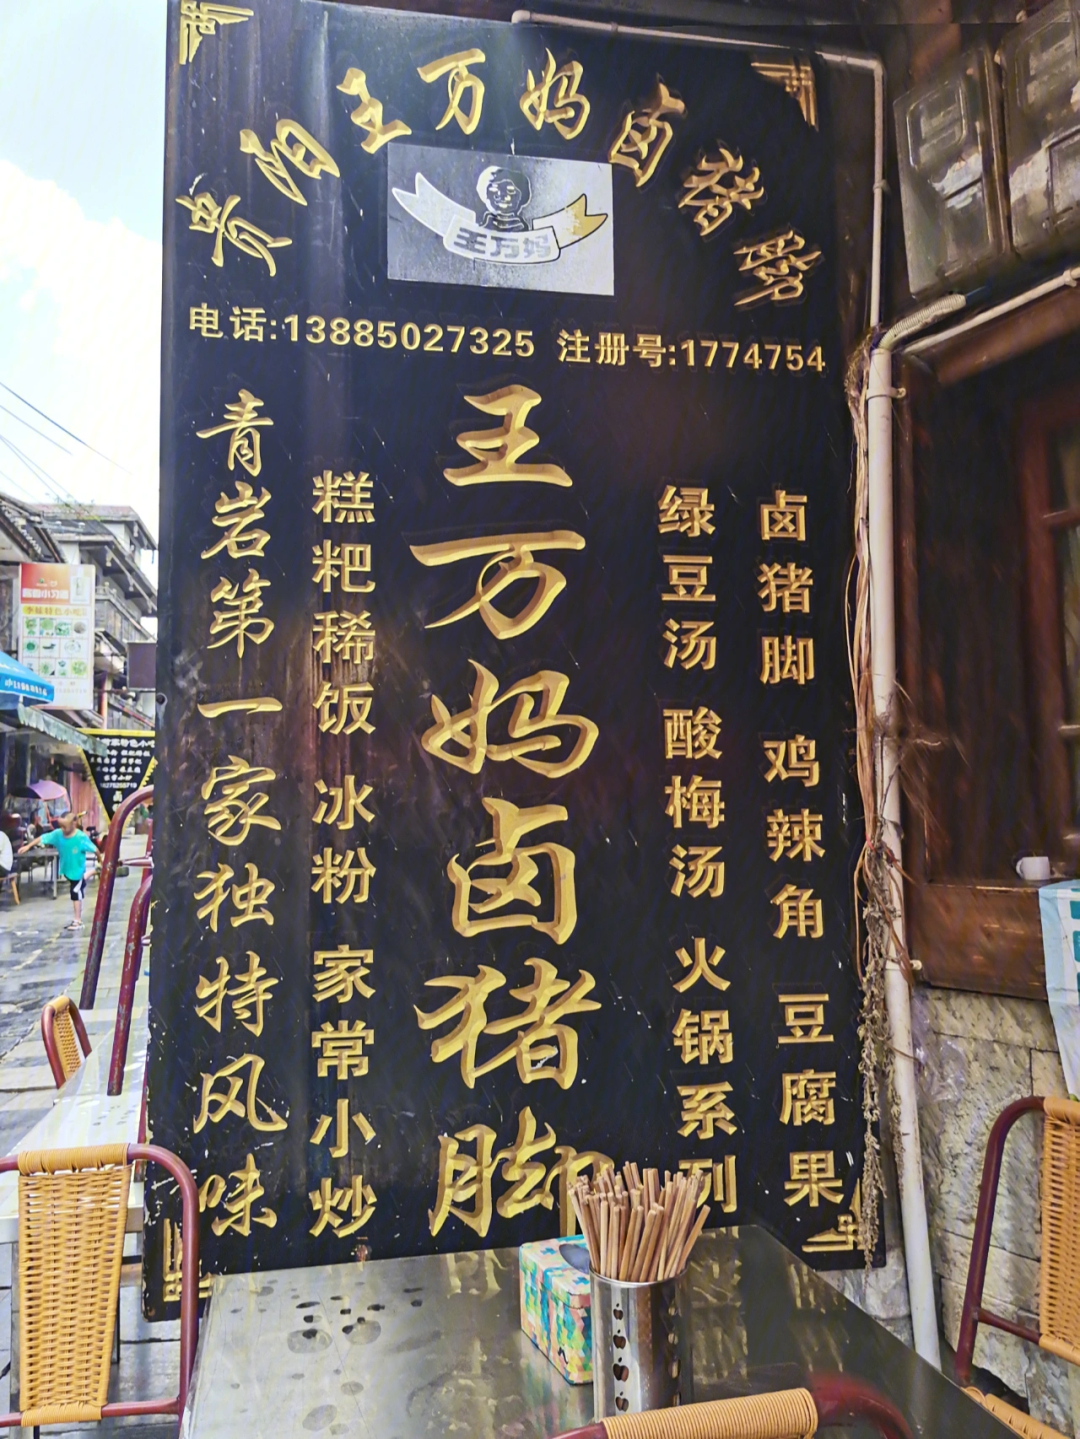 贵阳王万妈卤猪脚
王万妈
电话:13885027325 注册号:1774754
卤猪脚 鸡辣角 豆腐果
绿豆汤 酸梅汤 火锅系列
王万妈卤猪脚
糕粑稀饭 冰粉 家常小炒
青岩第一家独特风味